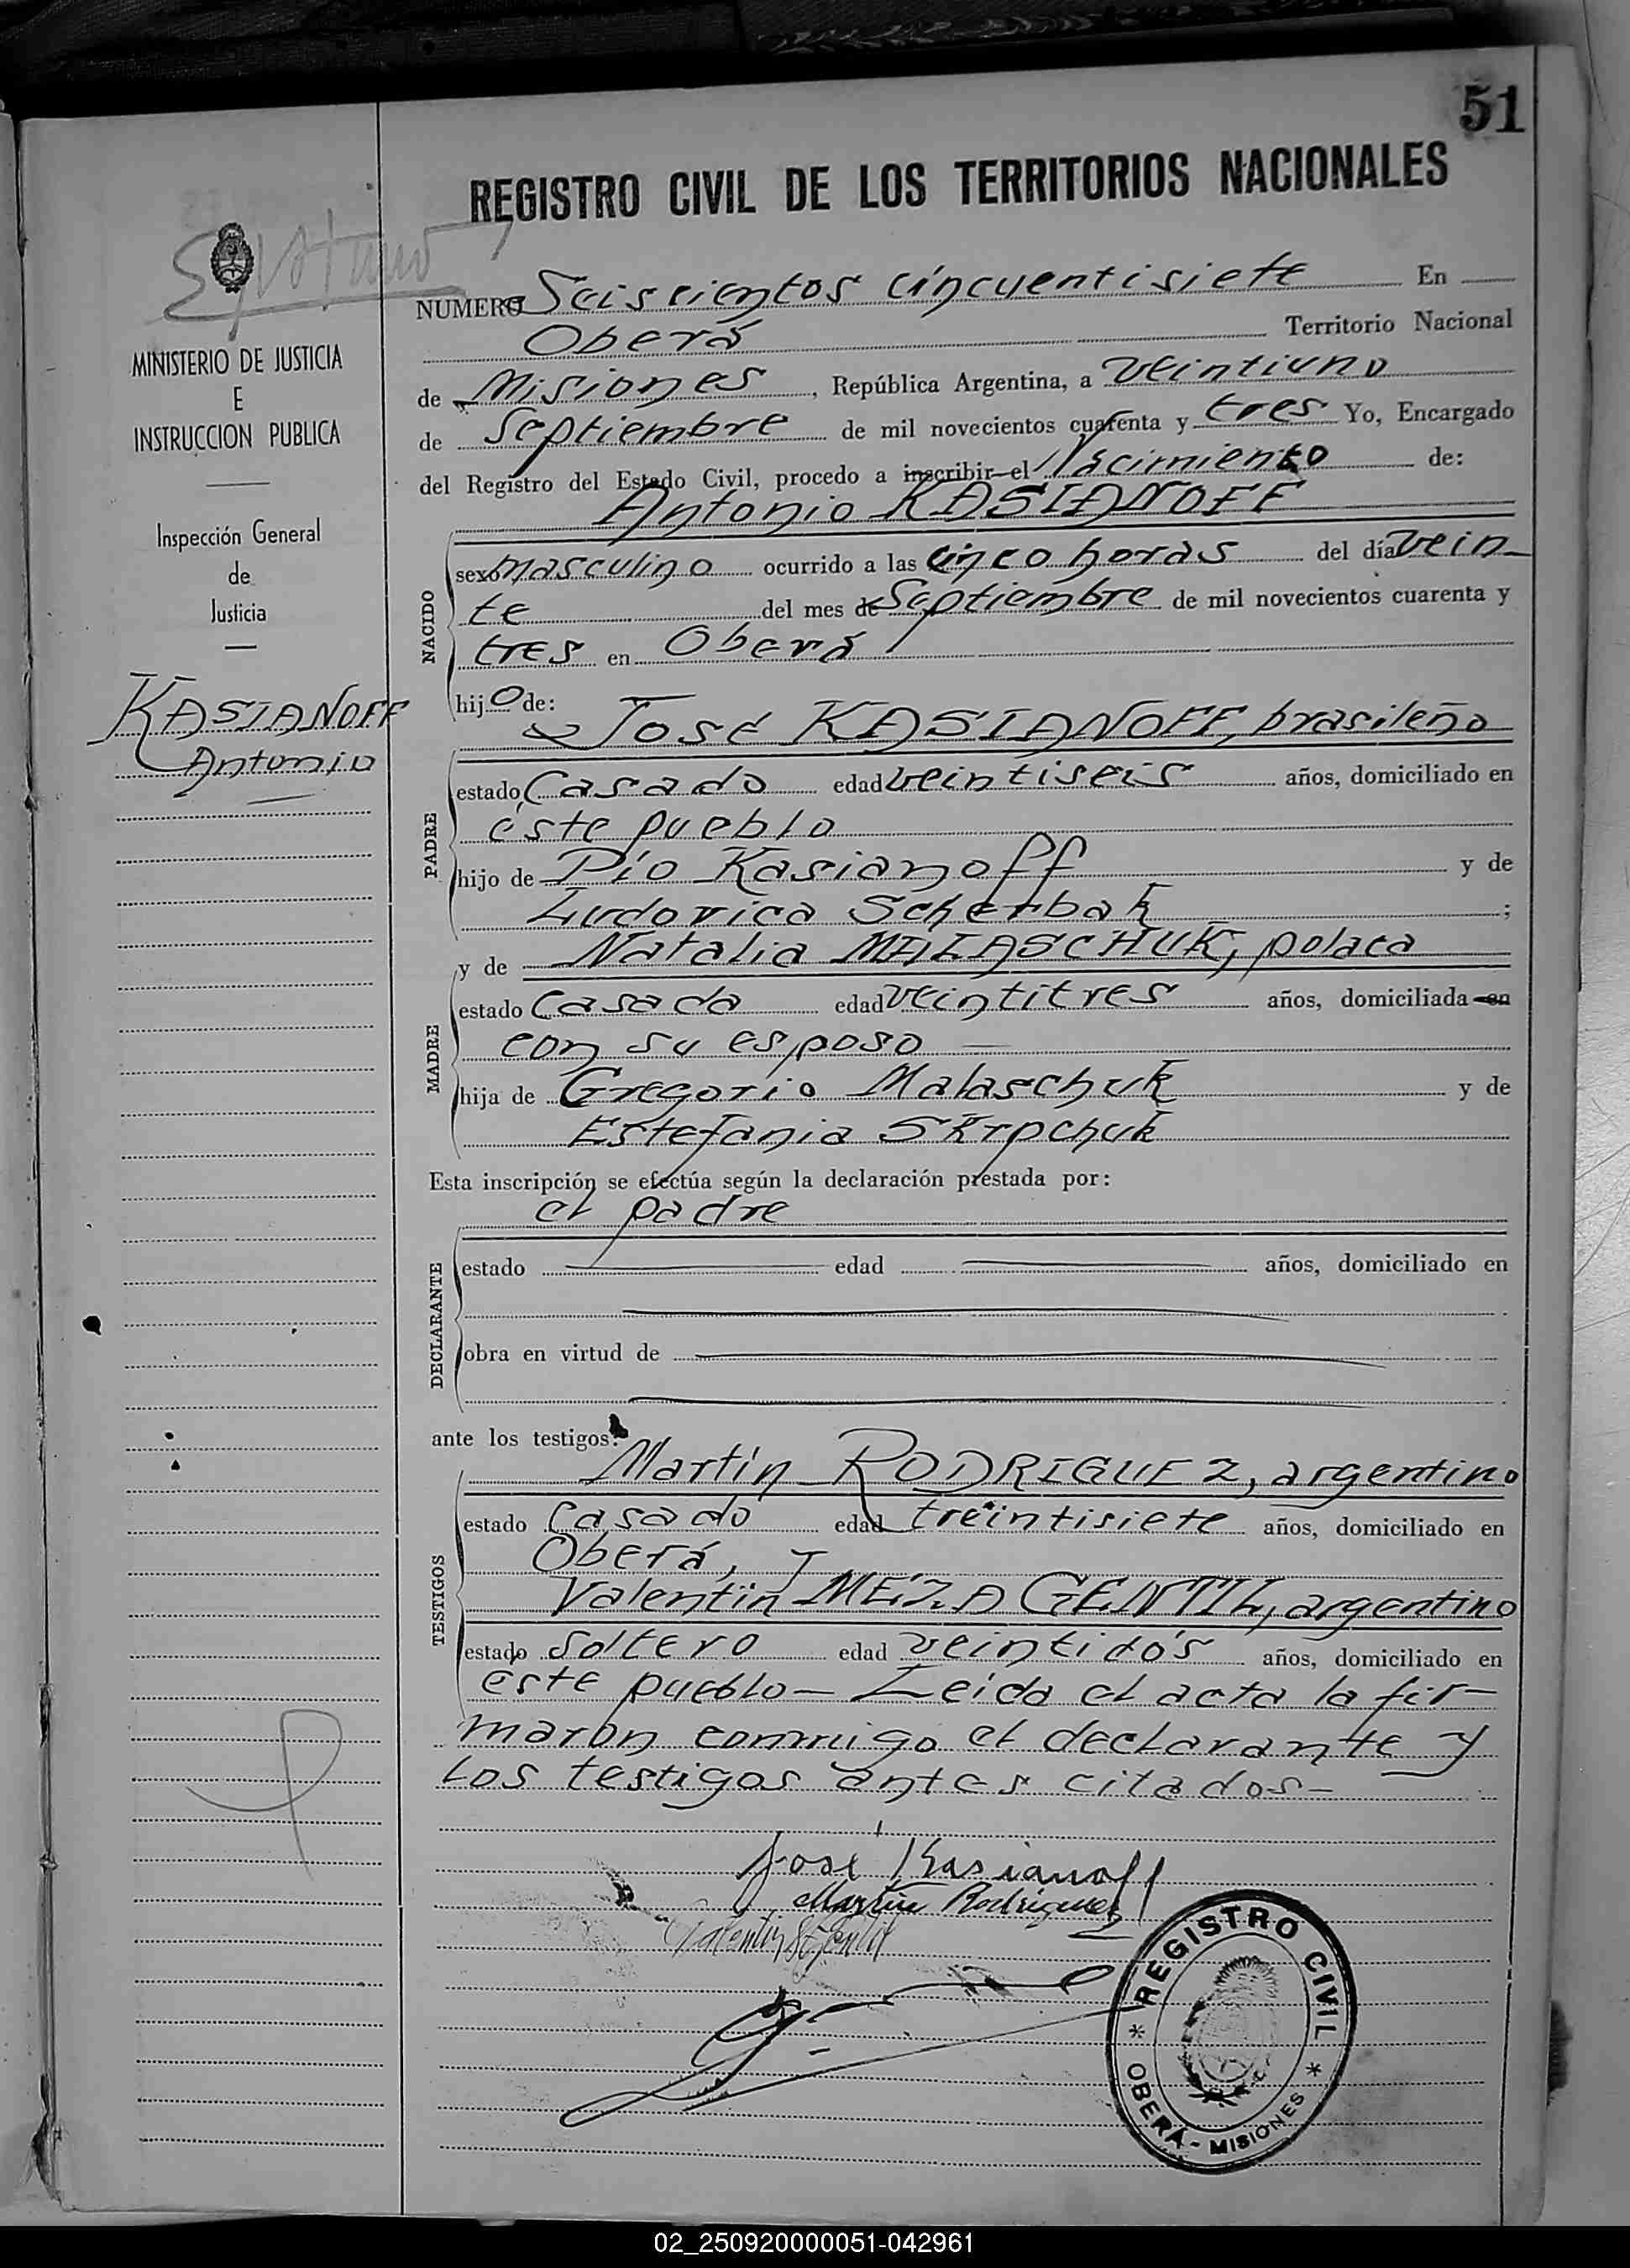 51
REGISTRO CIVIL DE LOS TERRITORIOS NACIONALES
MINISTERIO DE JUSTICIA
E
INSTRUCCION PUBLICA
Inspección General
de
Justicia
KASIANOFF
Antonio
NUMERO Seiscientos cincuentisiete En
Oberá Territorio Nacional
de Misiones, República Argentina, a veintiuno
de Septiembre de mil novecientos cuarenta y tres Yo, Encargado
del Registro del Estado Civil, procedo a inscribir el Nacimiento de:
Antonio KASIANOFF
NACIDO
sexo masculino ocurrido a las cinco horas del día vein
te del mes de Septiembre de mil novecientos cuarenta y
tres en Oberá
hijo de:
José KASIANOFF, brasileño
PADRE
estado Casado edad veintiseis años, domiciliado en
éste pueblo
hijo de Pío Kasianoff y de
Ludovica Scherbak ;
y de Natalia MALASCHUK, polaca
MADRE
estado casada edad veintitres años, domiciliada en
con su esposo
hija de Gregorio Malaschuk y de
Estefania
Esta inscripción se efectúa según la declaración prestada por:
el padre
DECLARANTE
estado edad años, domiciliado en
obra en virtud de
ante los testigos:
Martín RODRIGUEZ, argentino
TESTIGOS
estado casado edad treintisiete años, domiciliado en
Oberá,
Valentín MEZA GENTIL, argentino
estado soltero edad veintidós años, domiciliado en
este pueblo- Leida el acta la fir-
maron conmigo el declarante y
los testigos antes citados-
José Kasianoff
Martín Rodriguez
REGISTRO CIVIL
* OBERÁ - MISIONES *
02_250920000051-042961